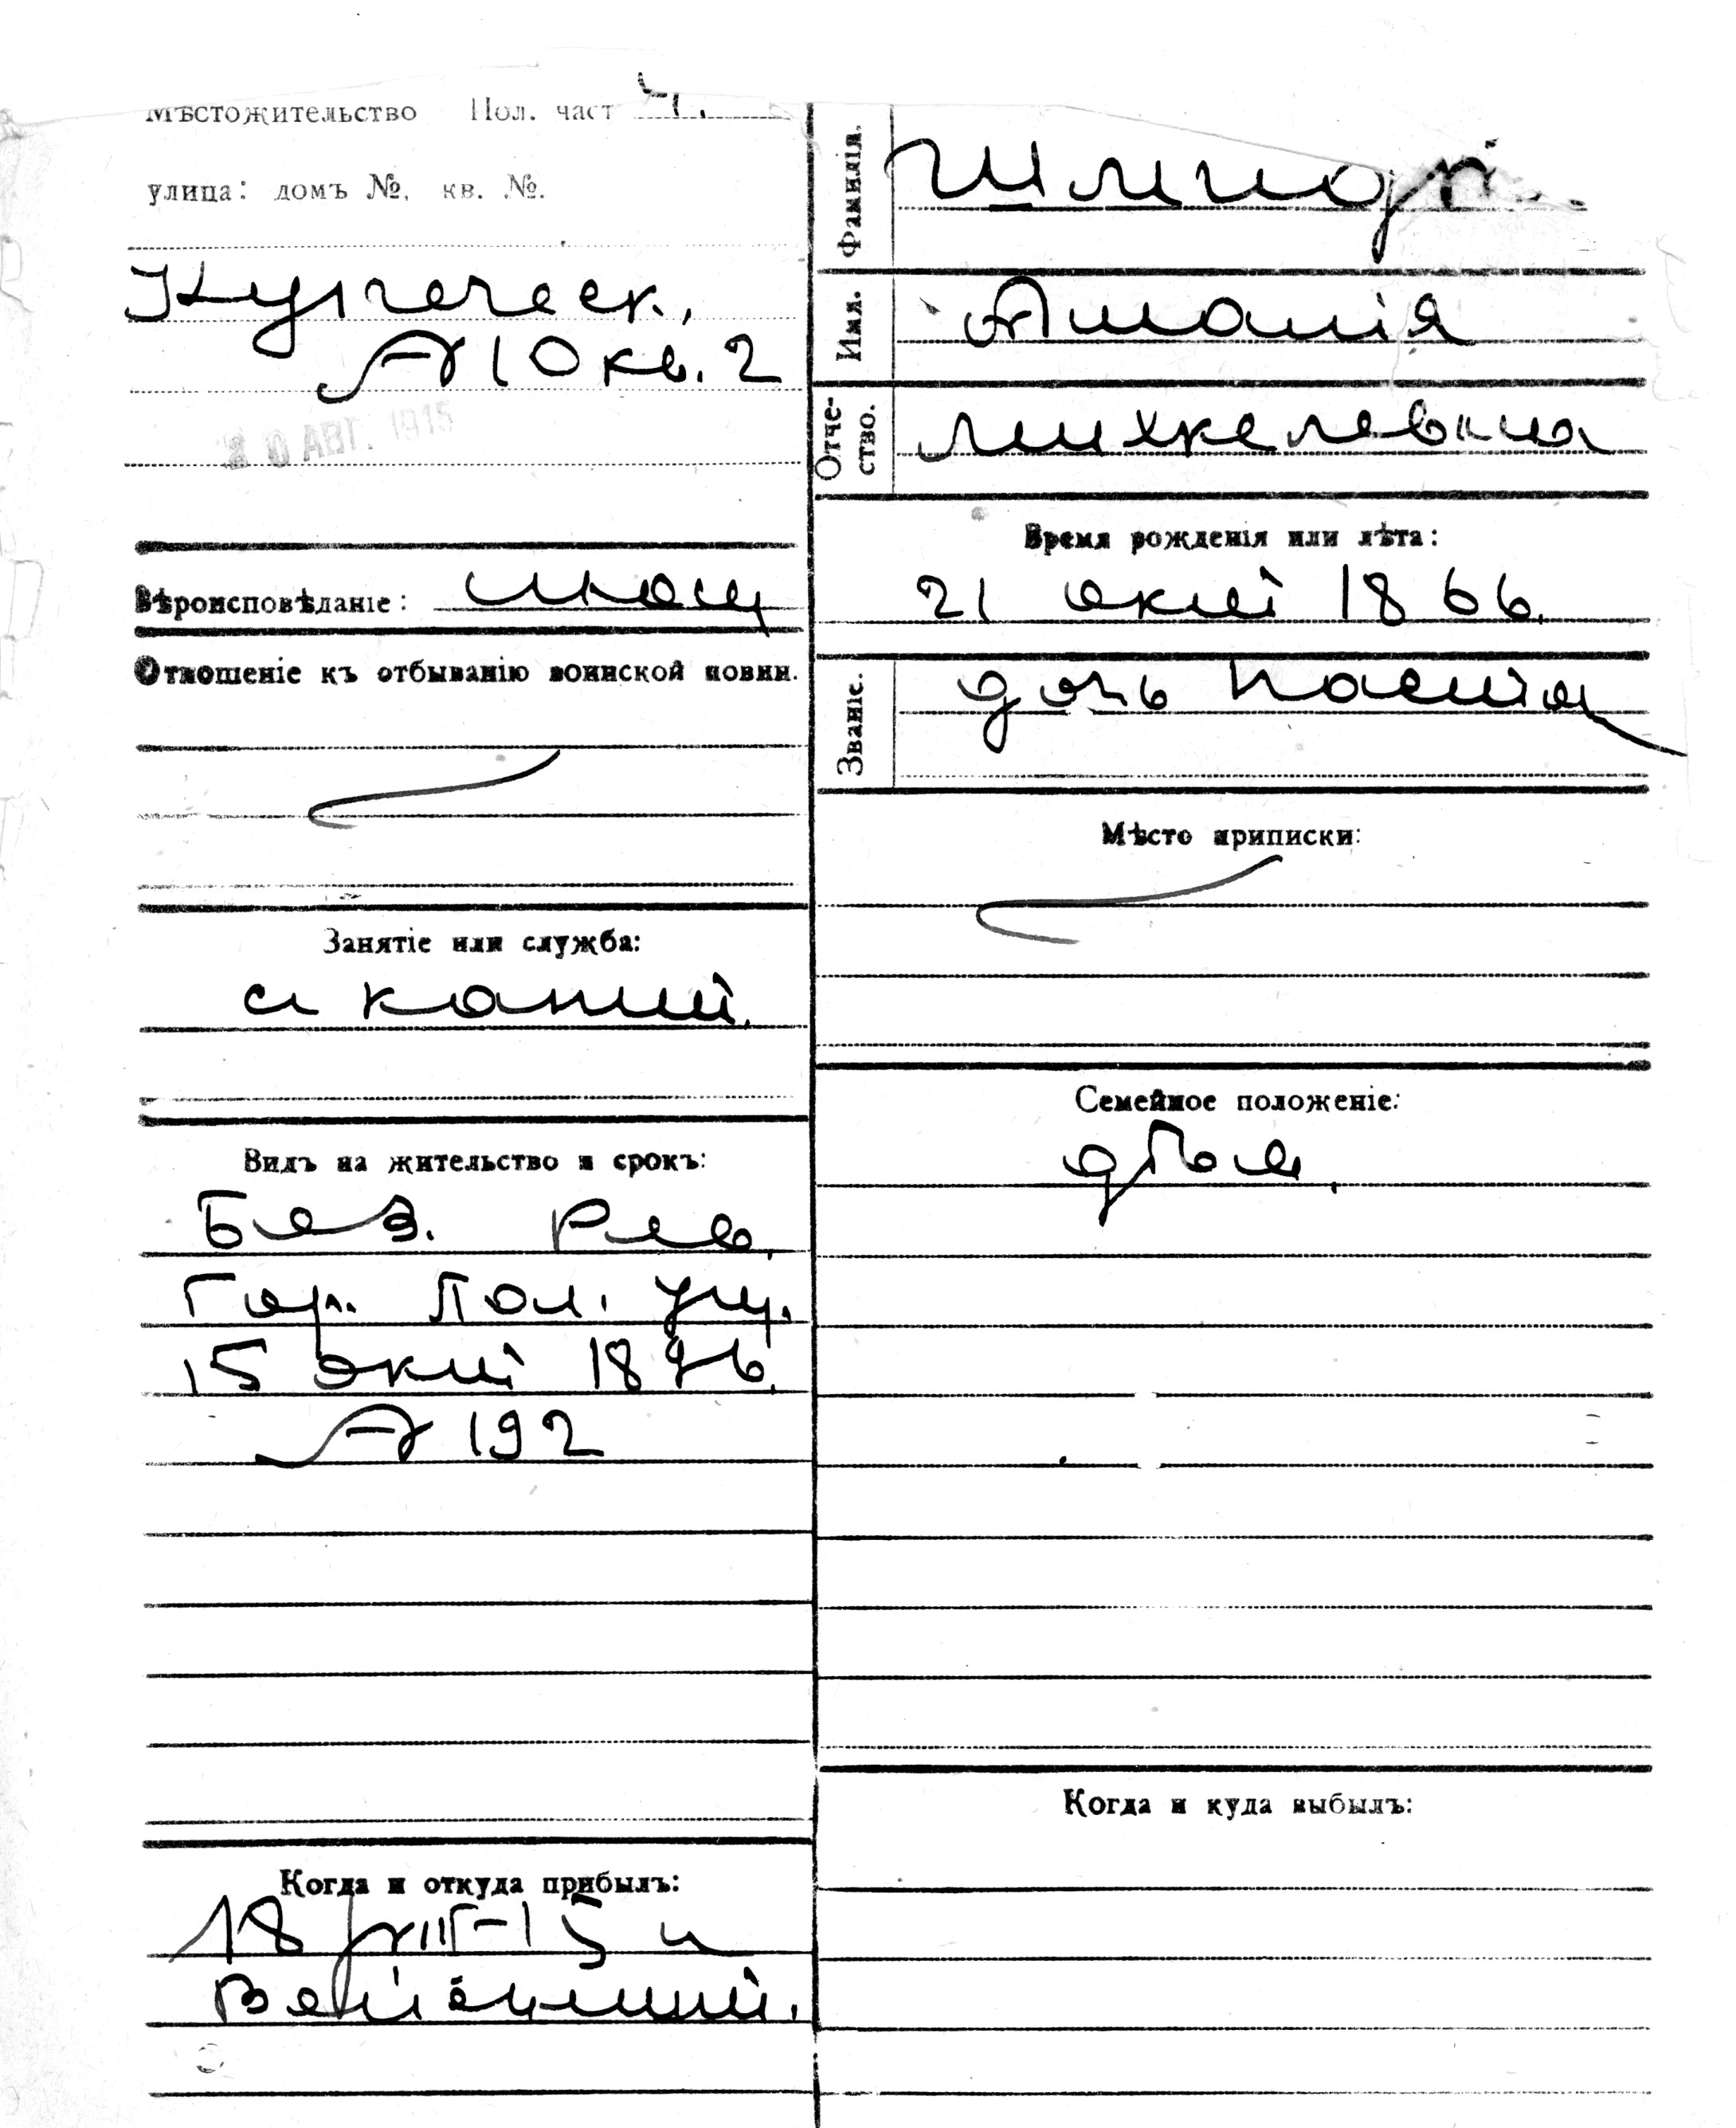 Мѣстожительство Пол. част 4.
улица: домъ №, кв. №.
Купеческ.,
№ 10 кв. 2
20 АВГ. 1915
Вѣроисповѣданіе: лют
Отношеніе къ отбыванію воинской повин.
Занятіе или служба:
Видъ на жительство и срокъ:
Без. Рев.
Гор. Пол. упр.
15 1896.
№ 192
Когда и откуда прибылъ:
18/VIII-15 и
Фамилія.
Имя. Амалія
Отчество. Михкелевна
Время рожденія или лѣта:
21 1866.
Званіе. дочь
Мѣсто приписки:
Семейное положеніе:
дѣв.
Когда и куда выбылъ: